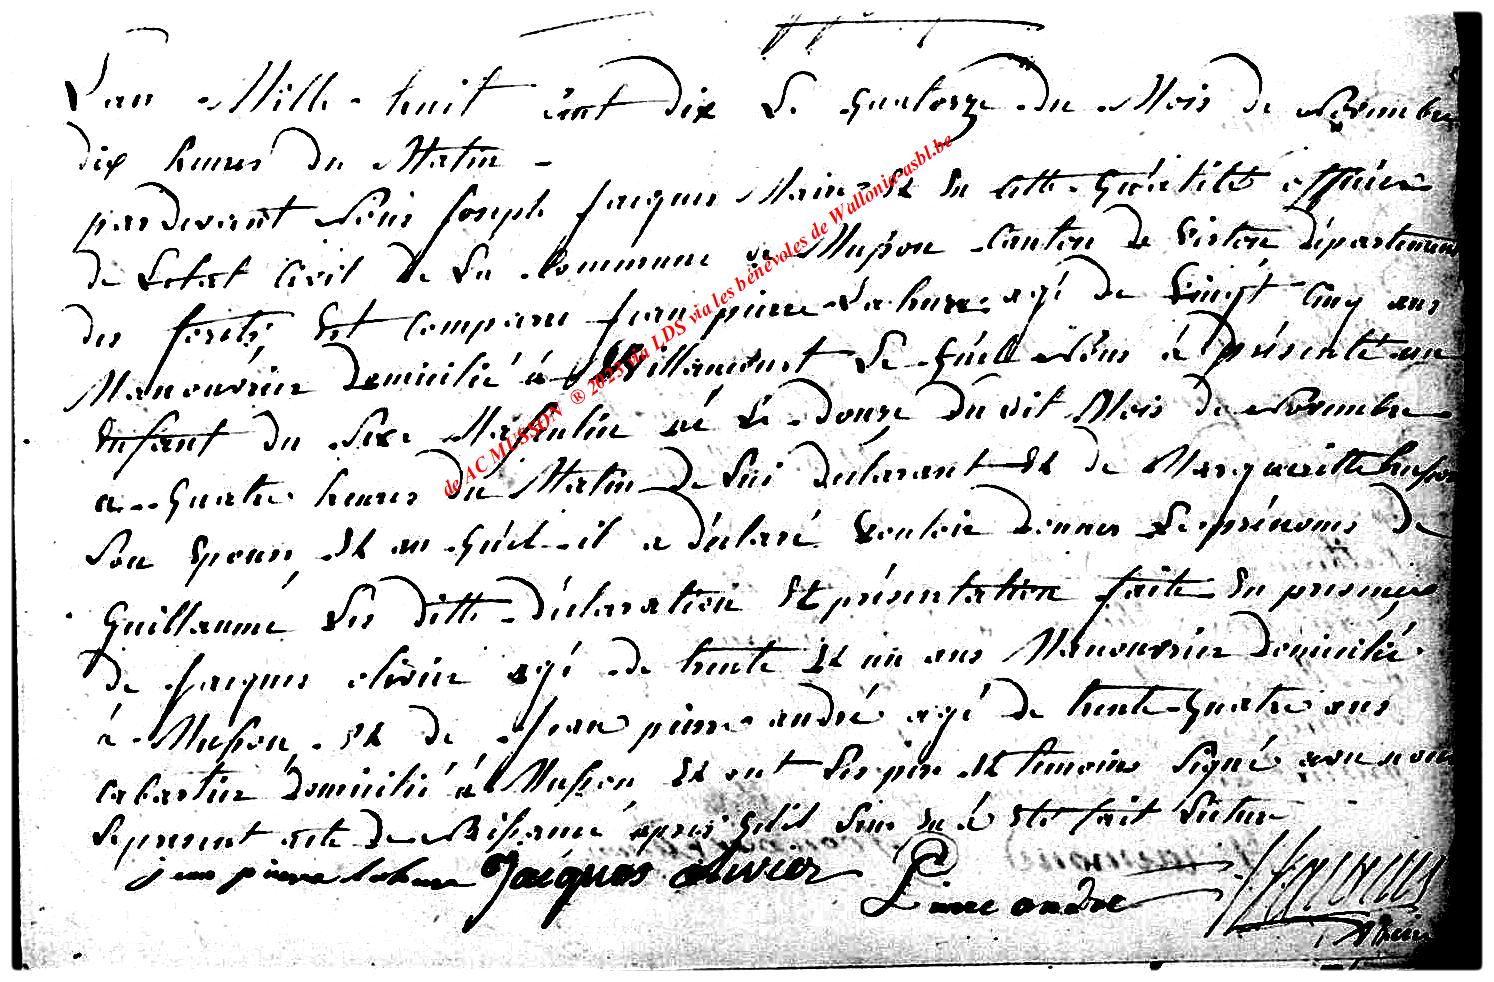 L'an Mille huit cent dix Le Quatorze du Mois de Novembre
dix heures du Matin
pardevant Nous Joseph Jacques Maire Et En cette Qualité officier
de L'etat Civil de La Commune de Musson Canton de Virton département
des forets Est comparu Jean pierre Lahure agé de Vingt Cinq ans
Manouvrier Domicilié à Willancourt Le Quel Nous à présenté un
Enfant du Sexe Masculin né Le Douze Du dit Mois de Novembre
a Quatre heures du Matin De Lui déclarant Et de Margueritte husson
Son Epouse Et au Quel il a déclaré Vouloir Donner Le prénoms De
Guillaume Les ditte Déclaration Et présentation faite En presences
de Jacques olivier agé de trente Et un ans Manouvrier Domicilié
à Musson Et de Jean pierre andré agé De trente Quatre ans
cabartier Domicilié à Musson Et ont Les pere Et temoins Signé avec nous
Le present acte De Naissance apres Qu'il Leur En à Eté fait Lecture
jean pierre lahure Jacques olivier
Pierre andre
Maire
de ACMUSSON ® 2023 via LDS via les bénévoles de Wallonia-asbl.be